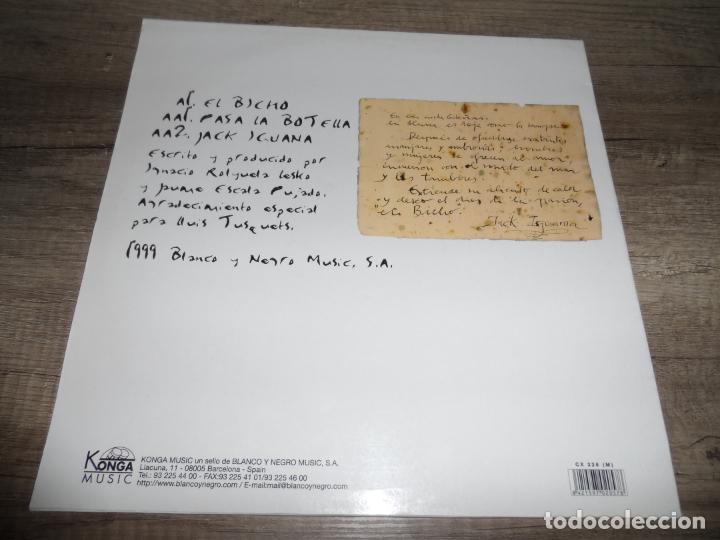 A1. EL BICHO
AA1. PASA LA BOTELLA
AA2. JACK IGUANA
Escrito y producido por
Ignacio
y Jaume Escala Pujado.
Agradecimiento especial
para Lluis Tusquets.
1999 Blanco y Negro Music, S.A.
En
la luna es roja como la
Después de
manjares y hombres
y mujeres se ofrecen al amor,
con el ruido del mar
y los tambores.
Extiende su aliento de calor
y deseo el dios de la pasión,
"El Bicho".
Jack Iguana
KONGA
MUSIC
KONGA MUSIC un sello de BLANCO Y NEGRO MUSIC, S.A.
Llacuna, 11 - 08005 Barcelona - Spain
Tel.: 93 225 44 00 - FAX:93 225 41 01/93 225 46 00
http://www.blancoynegro.com / E-mail:mail@blancoynegro.com
CX 338 (M)
todocoleccion
todocoleccion.net